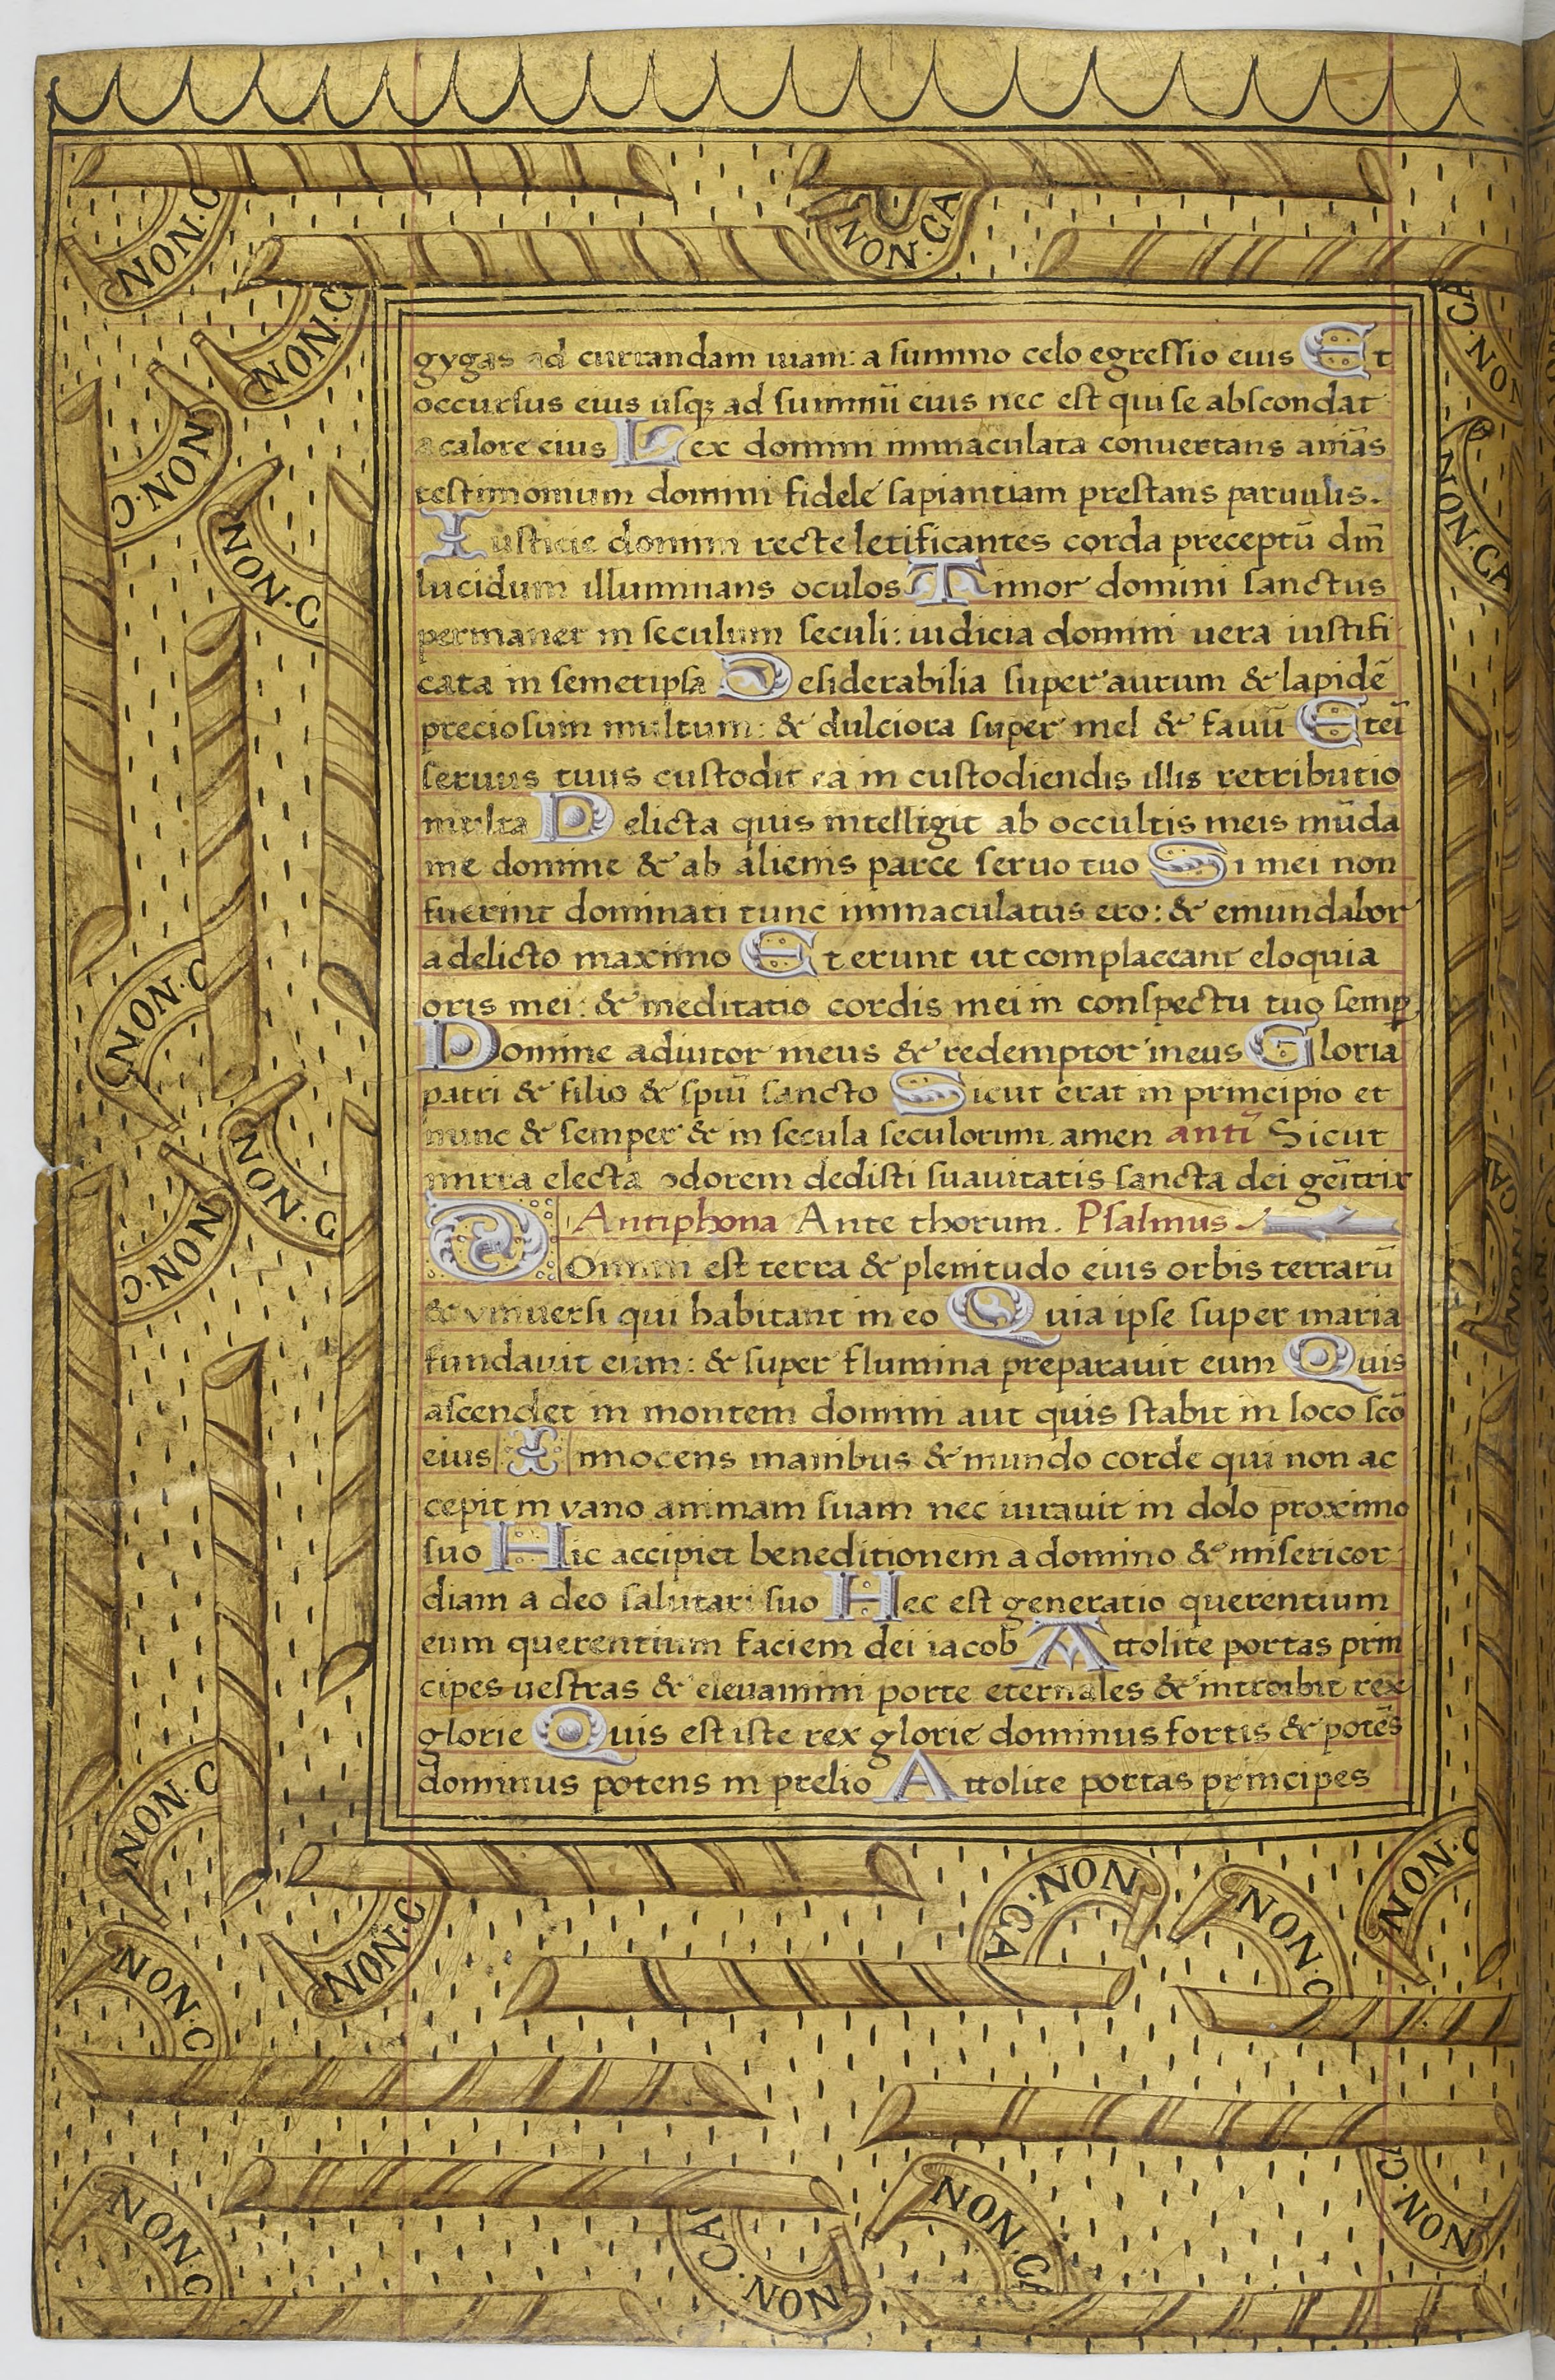 NON.C
NON.CA
NON.C
NON.C
NON.C
NON.C
NON.C
NON.C
NON.C
NON.C
NON.C
NON.C
gygas ad currandam uiam: a summo celo egressio eius Et
occursus eius usqꝫ ad summū eius nec est qui se abscondat
a calore eius Lex domini immaculata conuertans aniās
testimonium domini fidele sapiantiam prestans paruulis.
Iusticie domini recte letificantes corda preceptū dm̄
lucidum illuminans oculos Timor domini sanctus
permanet in seculum seculi: iudicia domini uera iustifi
cata in semetipsa Desiderabilia super aurum & lapidē
preciosum multum: & dulciora super mel & fauū Eteī
seruus tuus custodit ea in custodiendis illis retributio
multa Delicta quis intelligit ab occultis meis mūda
me domine & ab alienis parce seruo tuo Si mei non
fuerint dominati tunc immaculatus ero: & emundabor
a delicto maximo Et erunt ut complaceant eloquia
oris mei: & meditatio cordis mei in conspectu tuo semꝑ
Domine adiutor meus & redemptor meus Gloria
patri & filio & spūi sancto Sicut erat in principio et
nunc & semper & in secula seculorum. amen antī Sicut
mirra electa odorem dedisti suauitatis sancta dei geītrix
Antiphona Ante thorum. Psalmus
DOmini est terra & plenitudo eius orbis terrarū
& vniuersi qui habitant in eo Quia ipse super maria
fundauit eum: & super flumina preparauit eum Quis
ascendet in montem domini aut quis stabit in loco scō
eius Innocens manibus & mundo corde qui non ac
cepit in vano animam suam nec iurauit in dolo proximo
suo Hic accipiet beneditionem a domino & misericor
diam a deo salutari suo Hec est generatio querentium
eum querentium faciem dei iacob Attolite portas prin
cipes uestras & eleuamini porte eternales & introibit rex
glorie Quis est iste rex glorie dominus fortis & potēs
dominus potens in prelio Attolite portas principes
CA.NON
NON.CA
NON.CA
NON.C
NON.C
CA.NON
NON.CA
CA.NON